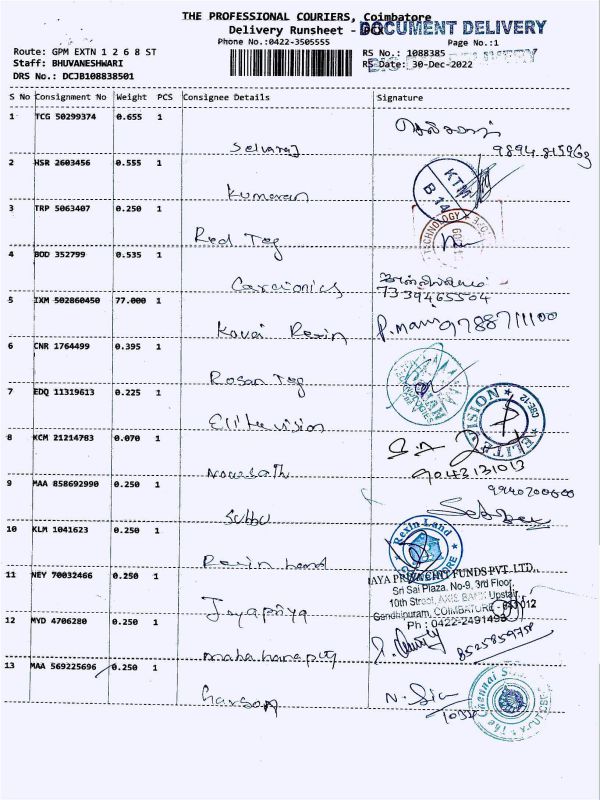 THE PROFESSIONAL COURIERS, Coimbatore
Delivery Runsheet - DOX
DOCUMENT DELIVERY
Phone No.:0422-3505555
Page No.:1
Route: GPM EXTN 1 2 6 8 ST
RS No.: 1088385
Staff: BHUVANESHWARI
RS Date: 30-Dec-2022
DRS No.: DCJB108838501
S No Consignment No Weight PCS Consignee Details Signature
1 TCG 50299374 0.655 1
Selvaraj 9894815963
2 HSR 2603456 0.555 1
Kumaran
KTM
B 14
3 TRP 5063407 0.250 1
TECHNOLOGY
Red Tag
4 BOD 352799 0.535 1
Cardionics 7339465504
5 IXM 502860450 77.000 1
Kovai Rexin P.mani 9788711100
6 CNR 1764499 0.395 1
Rosan Tag
7 EDQ 11319613 0.225 1
Elite vision
ELITE VISION
8 KCM 21214783 0.070 1
9043131013
9 MAA 858692990 0.250 1
Subbu
10 KLM 1041623 0.250 1
Rexin Land
Rexin Land
11 NEY 70032466 0.250 1
JAYA PRIYA CHIT FUNDS PVT. LTD.,
Sri Sai Plaza, No-9, 3rd Floor,
10th Street, AXIS BANK Upstair
Gandhipuram, COIMBATORE - 641 012
Ph : 0422-2491493
Jayapriya
12 MYD 4706280 0.250 1
8525859758
13 MAA 569225696 0.250 1
The Chennai